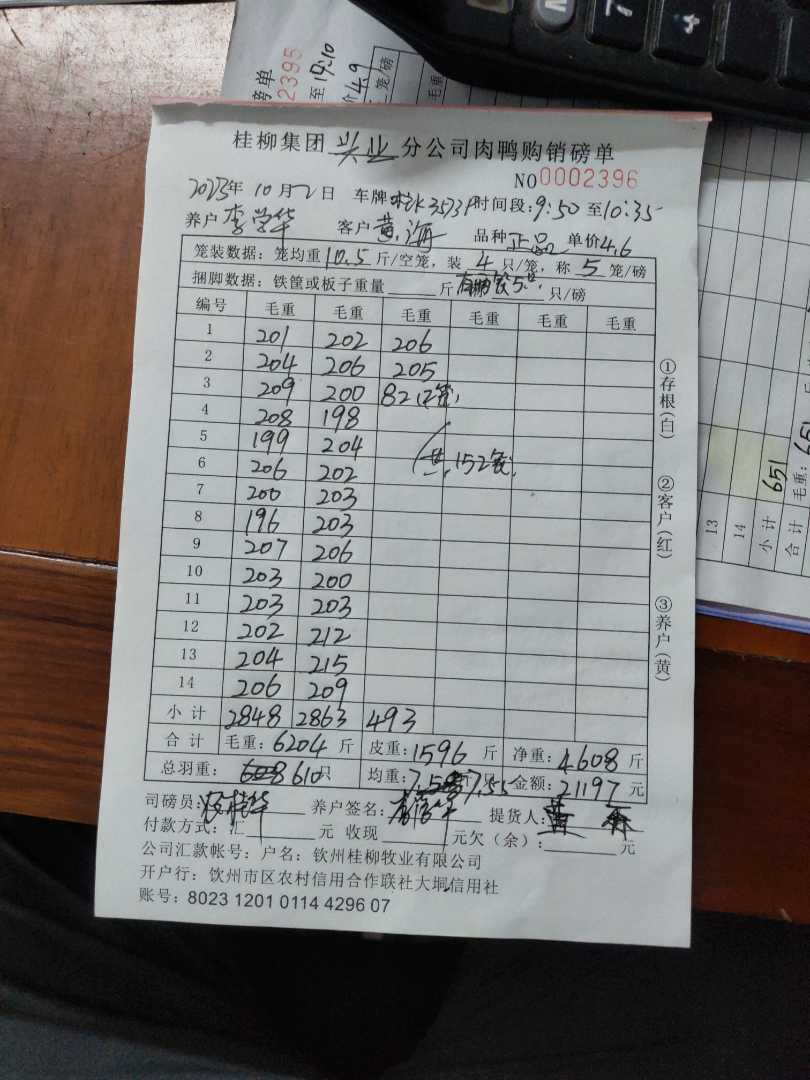 榜单
2395
至 19:10
价4.9
笼/磅
毛重
桂柳集团 兴业 分公司肉鸭购销磅单
NO0002396
2023年 10月2日 车牌 3573P 时间段:9:50 至10:35
养户 李学华 客户 黄海 品种 正品 单价4.6
笼装数据:笼均重 10.5 斤/空笼,装 4 只/笼,称 5 笼/磅
捆脚数据:铁筐或板子重量 斤 只/磅
编号 毛重 毛重 毛重 毛重 毛重 毛重
1 201 202 206
2 204 206 205
3 209 200 82(2笼)
4 208 198
5 199 204
6 206 202 共152笼
7 200 203
8 196 203
9 207 206
10 203 200
11 203 203
12 202 212
13 204 215
14 206 209
小计 2848 2863 493
合计 毛重:6204 斤 皮重:1596 斤 净重:4608 斤
总羽重: 610只 均重: 7.55 金额:21197 元
司磅员: 养户签名: 提货人:
付款方式:汇 元 收现 元欠(余): 元
公司汇款帐号:户名:钦州桂柳牧业有限公司
开户行:钦州市区农村信用合作联社大垌信用社
账号:8023 1201 0114 4296 07
①存根(白)
②客户(红)
③养户(黄)
13
14
小计 651
合计 毛重: 651